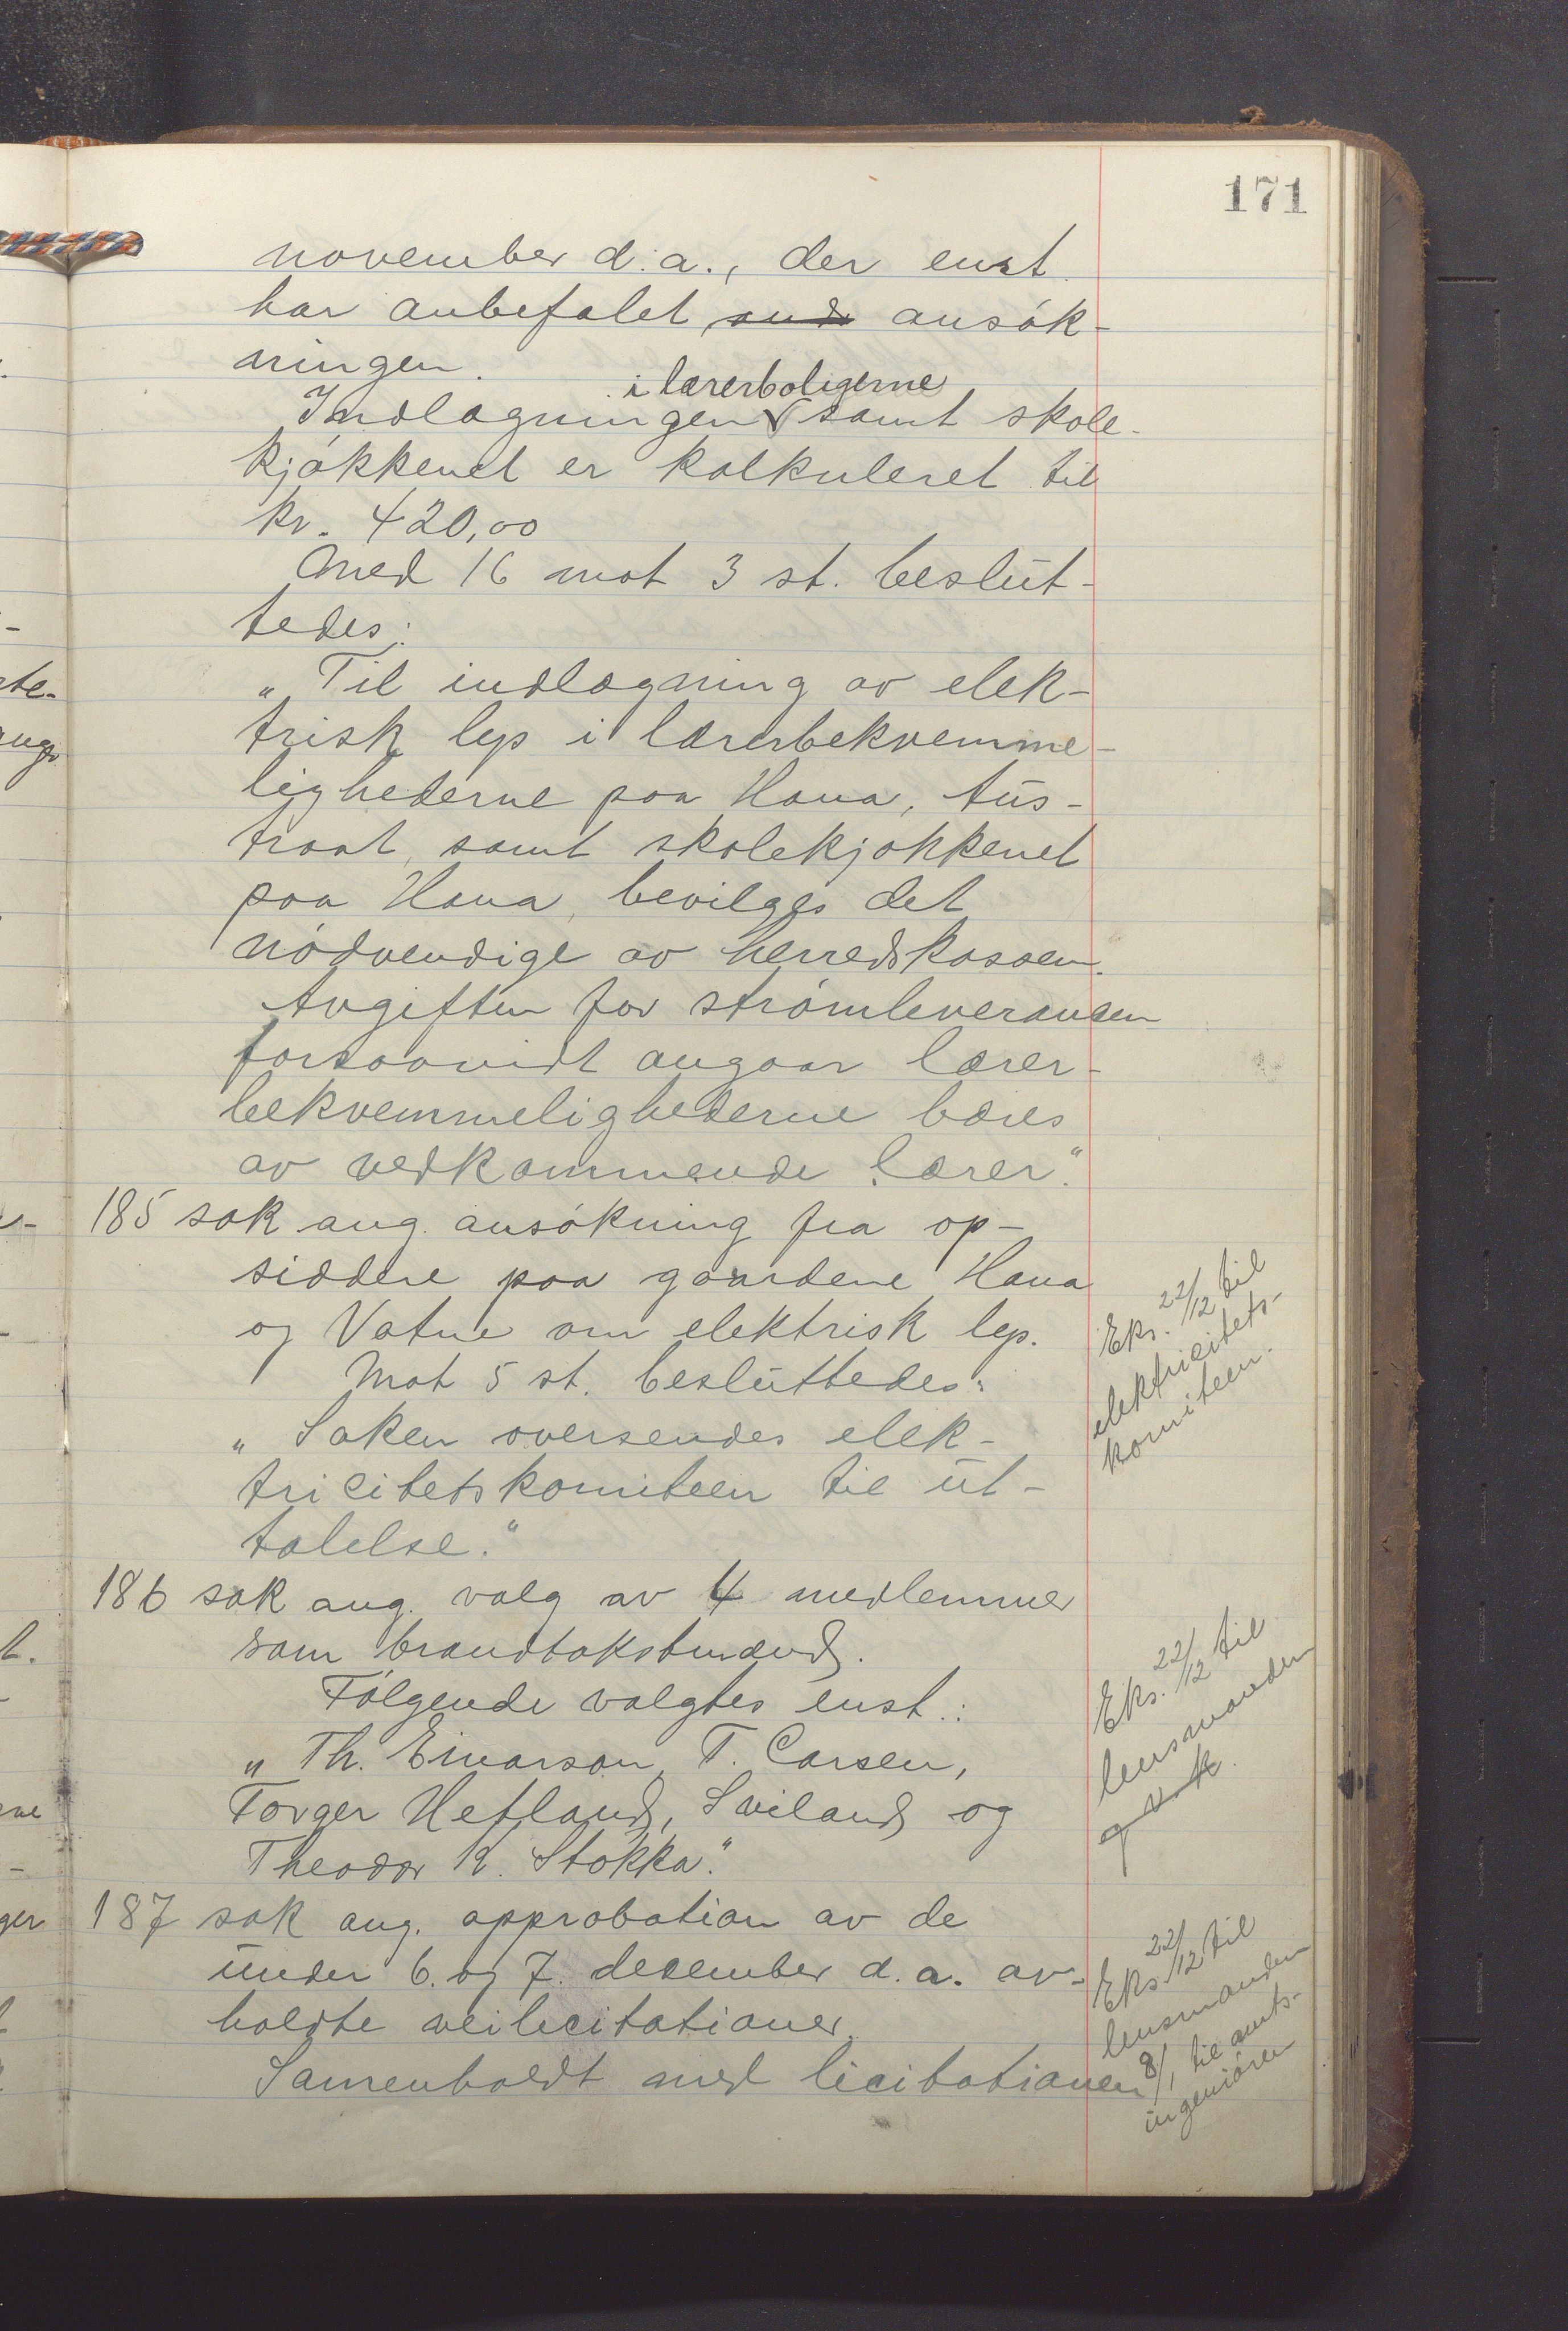 171
november d.a., der enst.
har anbefalet ands ansök-
ningen.
i lærerboligerne
Indlægningen samt skole-
kjökkenet er kalkuleret til
kr. 420,00
Med 16 mot 3 st. beslut-
tedes:
„Til indlægning av elek-
trisk lys i lærerbekvemme-
lighederne paa Hana, Aus-
traat, samt skolekjøkkenet
paa Hana, bevilges det
nödvendige av herredskassen.
Avgiften for strömleveransen
forsaavidt angaar lærer-
bekvemmelighederne bæres
av vedkommende lærer."
185 sak ang. ansökning fra op-
siddere paa gaardene Hana
og Vatne om elektrisk lys.
Mot 5 st. besluttedes:
„Saken oversendes elek-
tricitetskomiteen til ut-
talelse."
Eks. 22/12 til
elektricitets-
komiteen.
186 sak ang. valg av 4 medlemmer
som brandtakstmænd.
Fölgende valgtes enst.:
„Th. Einarson, T. Carsen,
Torger Hetland, Sviland og
Theodor K. Stokka."
Eks. 22/12 til
lensmanden
187 sak ang. approbation av de
under 6. og 7. desember d.a. av-
holdte veilicitationer.
Samenholdt med licitationen
Eks. 22/12 til
lensmanden
8/1 til amts-
ingeniören